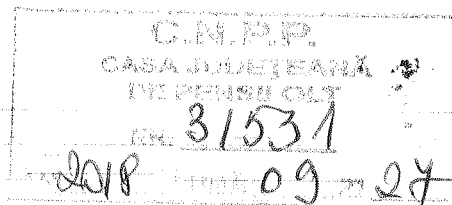 C.N.P.P.
CASA JUDEȚEANĂ
DE PENSII OLT
NR. 31531
2018 LUNA 09 ZIUA 27